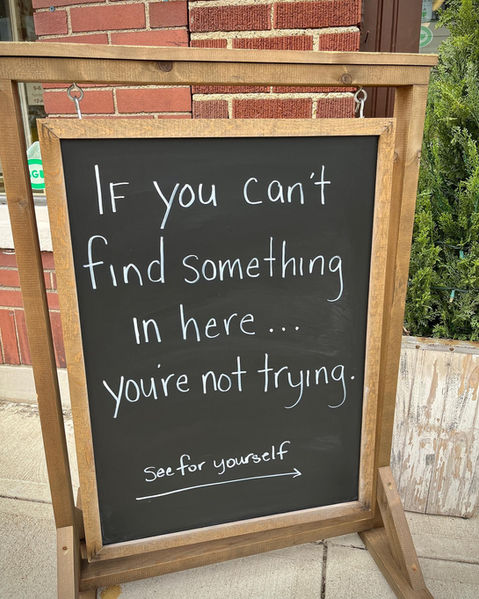 If you can't
find something
in here...
you're not trying.
see for yourself